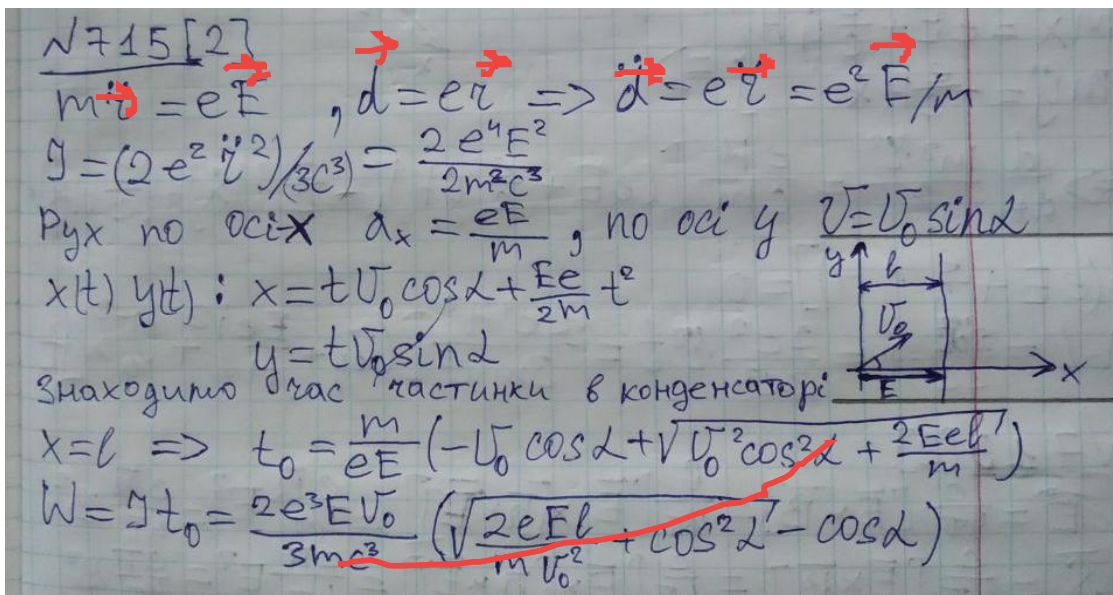 N715[2]
m\ddot{\vec{r}} = e\vec{E}, \vec{d} = e\vec{r} => \ddot{\vec{d}} = e\ddot{\vec{r}} = e² \vec{E}/m
J = (2e² \ddot{r}²)/(3c³) = \frac{2e⁴E²}{2m²c³}
Рух по осі-х a_x = \frac{eE}{m}, по осі y V=V₀ sinα
x(t) y(t): x = tV₀ cosα + \frac{Ee}{2m} t²
y = tV₀ sinα
y l V₀ E x
Знаходимо час частинки в конденсаторі
x=l => t₀ = \frac{m}{eE} (-V₀ cosα + \sqrt{V₀² cos²α + \frac{2Eel}{m}})
W = Jt₀ = \frac{2e³EV₀}{3mc³} (\sqrt{\frac{2eEl}{mV₀²} + cos²α} - cosα)